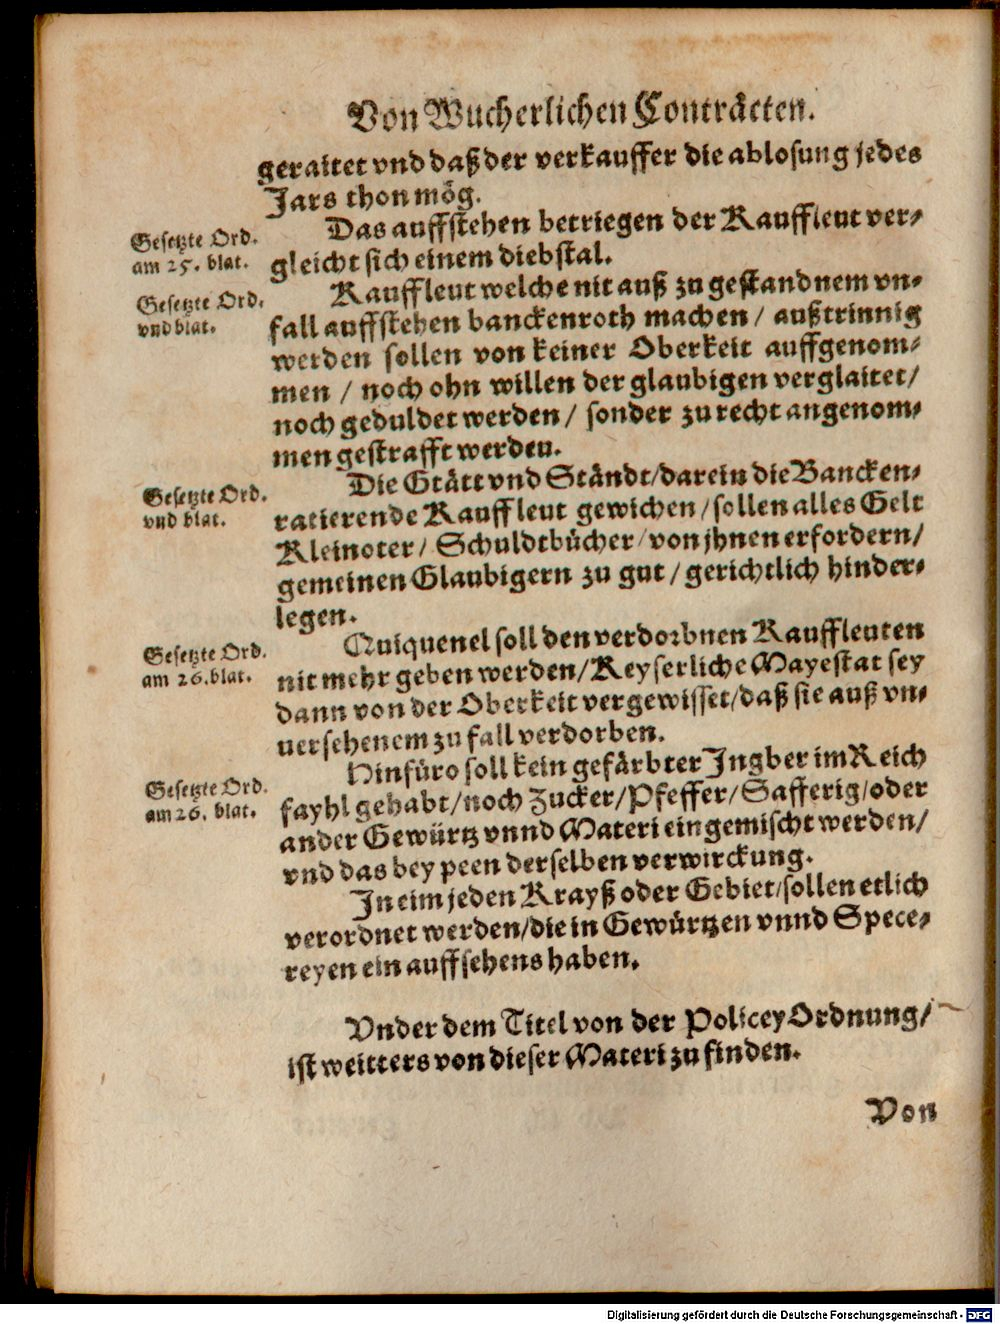 Von Wucherlichen Conträcten.
geraitet vnd daß der verkauffer die ablosung jedes
Jars thon mög.
Gesetzte Ord.
am 25. blat.
Das auffstehen betriegen der Kauffleut ver-
gleicht sich einem diebstal.
Gesetzte Ord.
vnd blat.
Kauffleut welche nit auß zu gestandnem vn-
fall auffstehen banckenroth machen / außtrinnig
werden sollen von keiner Oberkeit auffgenom-
men / noch ohn willen der glaubigen verglaitet /
noch geduldet werden / sonder zu recht angenom-
men gestrafft werden.
Gesetzte Ord.
vnd blat.
Die Stätt vnd Ständt / darein die Bancken-
ratierende Kauffleut gewichen / sollen alles Gelt
Kleinoter / Schuldtbücher / von jhnen erfordern /
gemeinen Glaubigern zu gut / gerichtlich hinder-
legen.
Gesetzte Ord.
am 26. blat.
Quiquenel soll den verdorbnen Kauffleuten
nit mehr geben werden / Keyserliche Mayestat sey
dann von der Oberkeit vergewisset / daß sie auß vn-
uersehenem zufall verdorben.
Gesetzte Ord.
am 26. blat.
Hinfüro soll kein gefärbter Ingber im Reich
fayhl gehabt / noch Zucker / Pfeffer / Safferig / oder
ander Gewürtz vnnd Materi eingemischt werden /
vnd das bey peen derselben verwirckung.
In eim jeden Krayß oder Gebiet / sollen etlich
verordnet werden / die in Gewürtzen vnnd Spece-
reyen ein auffsehens haben.
Vnder dem Titel von der Policey Ordnung /
ist weitters von dieser Materi zu finden.
Von
Digitalisierung gefördert durch die Deutsche Forschungsgemeinschaft - DFG